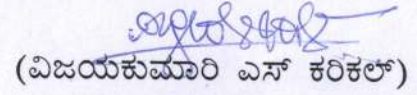 (ವಿಜಯಕುಮಾರಿ ಎಸ್ ಕರಿಕಲ್)